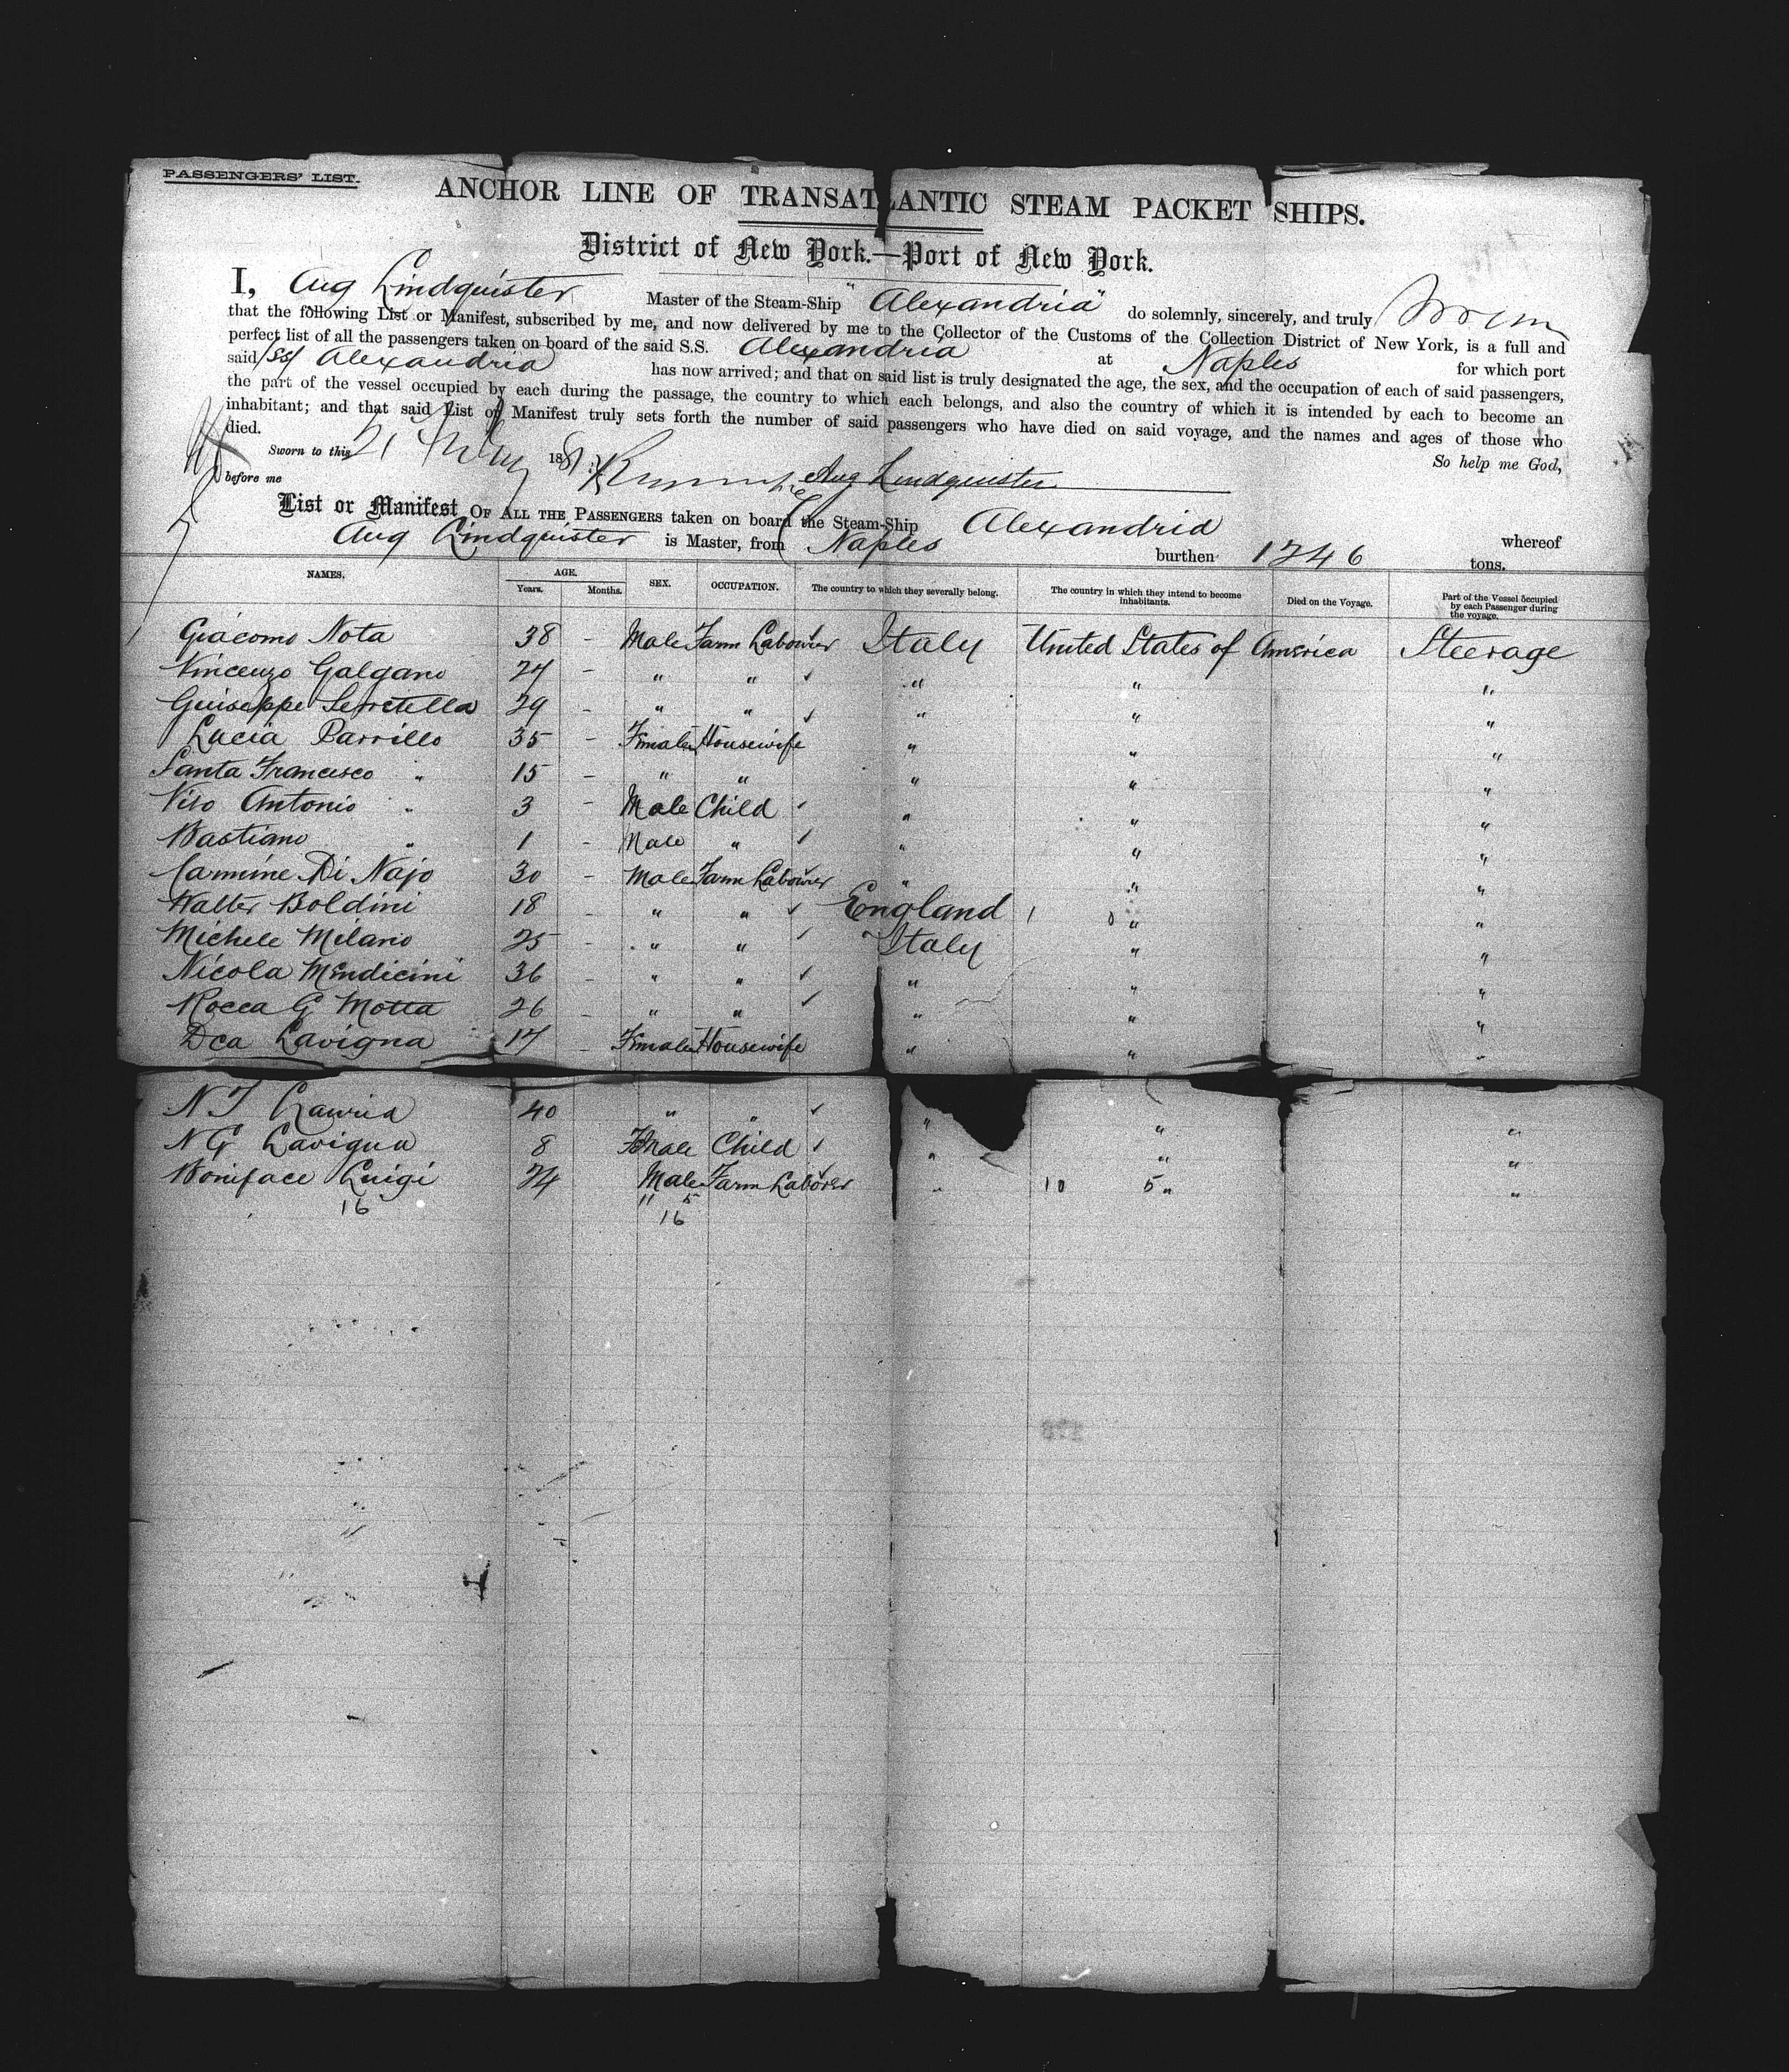 PASSENGERS' LIST.
ANCHOR LINE OF TRANSATLANTIC STEAM PACKET SHIPS.
District of New York.—Port of New York.
I, Aug Lindquister Master of the Steam-Ship "Alexandria" do solemnly, sincerely, and truly
that the following List or Manifest, subscribed by me, and now delivered by me to the Collector of the Customs of the Collection District of New York, is a full and
perfect list of all the passengers taken on board of the said S.S. Alexandria at Naples for which port
said SS Alexandria has now arrived; and that on said list is truly designated the age, the sex, and the occupation of each of said passengers,
the part of the vessel occupied by each during the passage, the country to which each belongs, and also the country of which it is intended by each to become an
inhabitant; and that said List of Manifest truly sets forth the number of said passengers who have died on said voyage, and the names and ages of those who
died. So help me God,
Sworn to this 21 May 1881
before me Aug Lindquister
List or Manifest OF ALL THE PASSENGERS taken on board the Steam-Ship Alexandria whereof
Aug Lindquister is Master, from Naples burthen 1246 tons.
NAMES. AGE. Years. Months. SEX. OCCUPATION. The country to which they severally belong. The country in which they intend to become inhabitants. Died on the Voyage. Part of the Vessel occupied by each Passenger during the voyage.
Giacomo Nota 38 - Male Farm Labourer Italy United States of America Steerage
Vincenzo Galgano 24 - " " " " "
Guiseppe Serretella 29 - " " " " "
Lucia Parrillo 35 - Female Housewife " " "
Santa Francesco " 15 - " " " " "
Vito Antonio " 3 - Male Child " " "
Bastiano " 1 - Male " " " "
Carmine Di Najo 30 - Male Farm Labourer " " "
Walter Boldini 18 - " " England 1 0 " "
Michele Milano 25 - " " Italy " "
Nicola Mendicini 36 - " " " " "
Rocca G Motta 26 - " " " " "
Dca Lavigna 17 - Female Housewife " " "
N T Lauria 40 " " " " "
N G Lavigna 8 Female Child " " "
Boniface Luigi 24 Male Farm Laborer " 10 5 " "
16 11 5
16